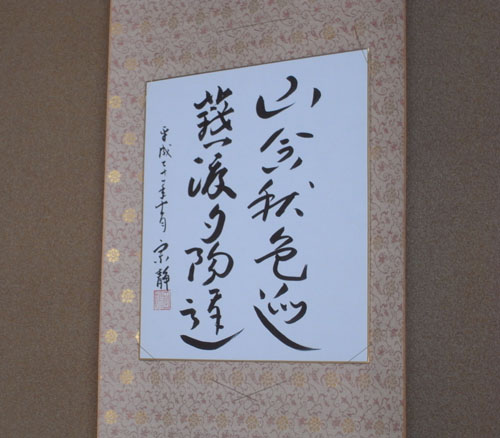 山含秋色近
燕渡夕陽遲
平成二十一年十月 宗靜